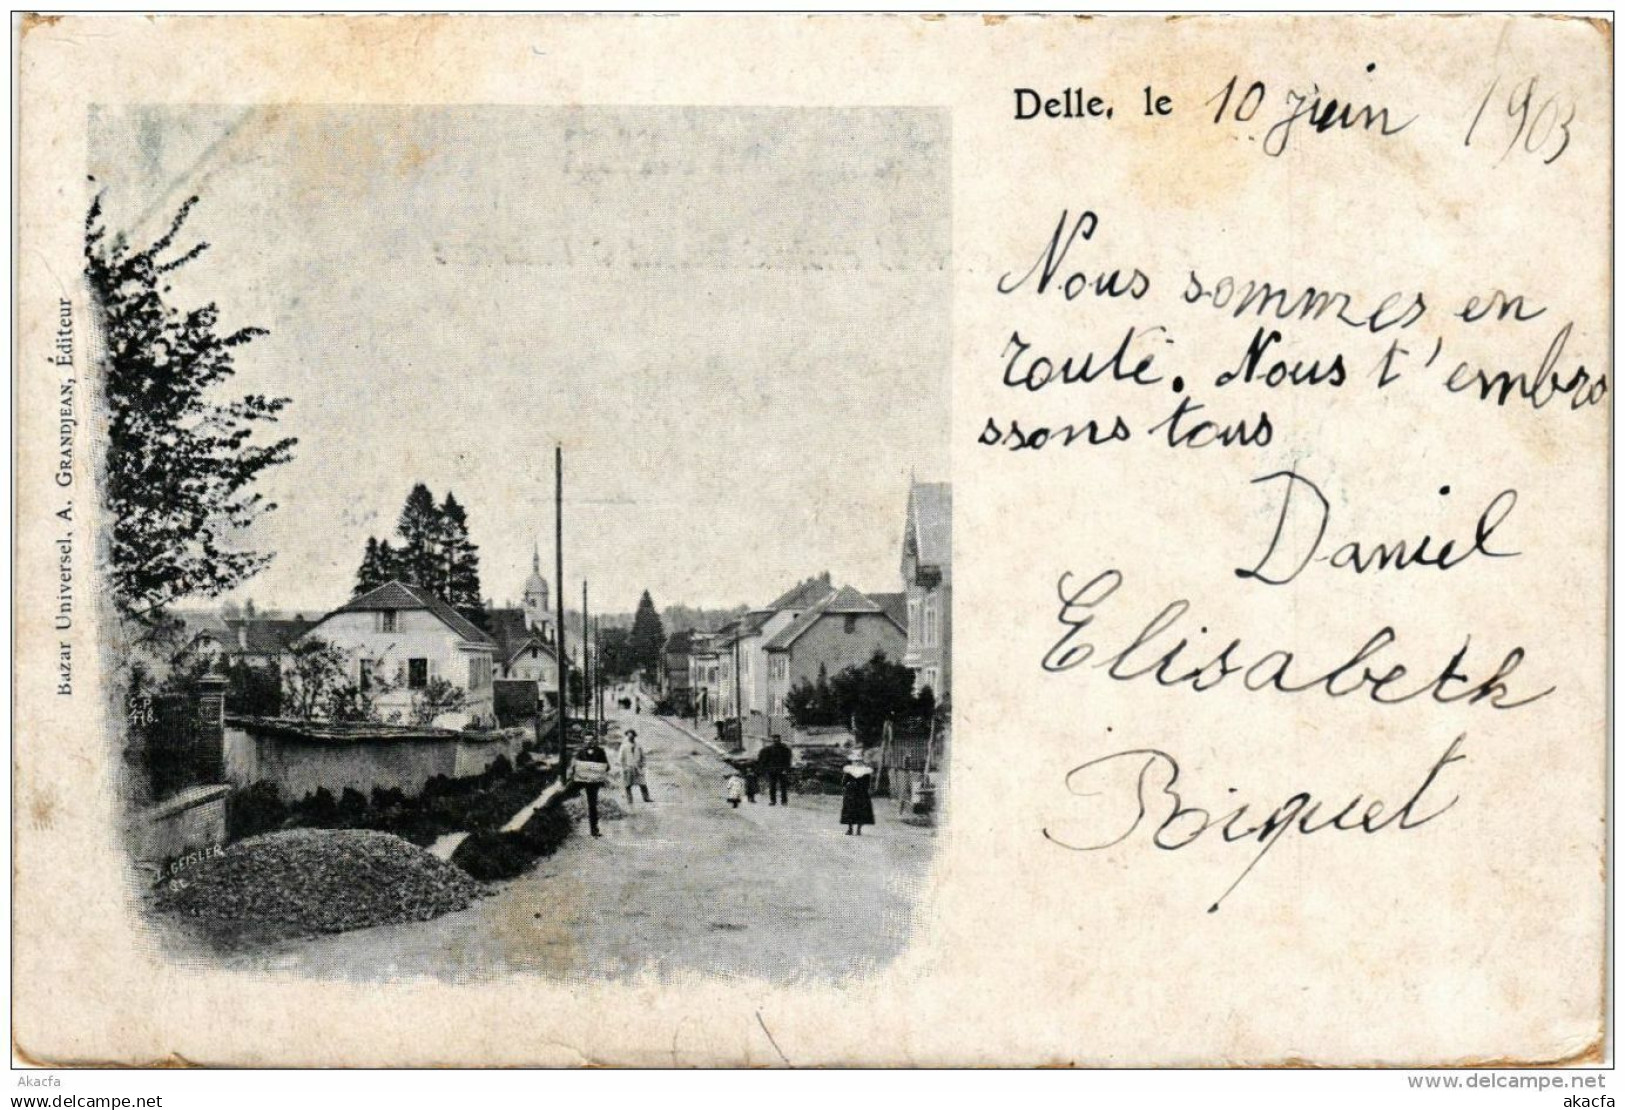 Delle, le 10 Juin 1903
Nous sommes en
route. Nous t'embra
ssons tous
Daniel
Elisabeth
Biquet
Bazar Universel, A. GRANDJEAN, Éditeur
C.P.
418.
L. GEISLER
Akacfa
akacfa.com
www.delcampe.net
akacfa